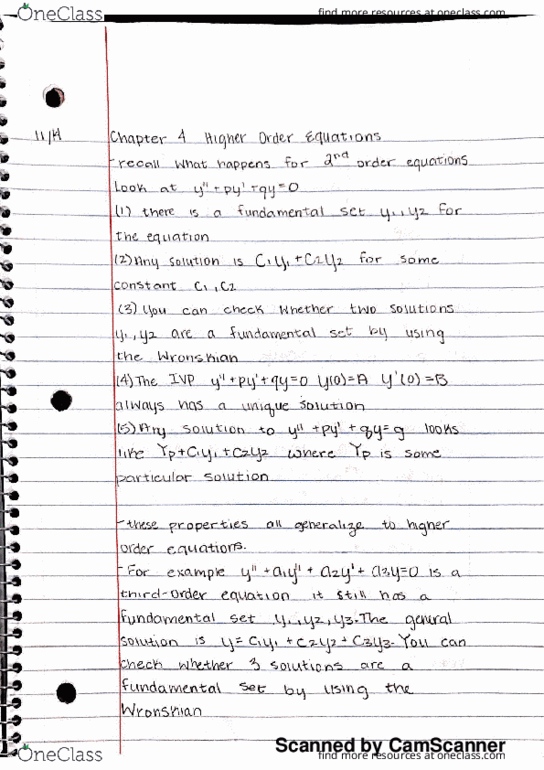 OneClass
find more resources at oneclass.com
11/14
Chapter 4 Higher Order Equations
-recall what happens for 2nd order equations
Look at y" + py' + qy=0
(1) there is a fundamental set y₁, y₂ for
the equation
(2) Any solution is C₁y₁ + C₂y₂ for some
constant C₁, C₂
(3) You can check whether two solutions
y₁, y₂ are a fundamental set by using
the Wronskian
(4) The IVP y" + py' + qy=0 y(0)=A y'(0)=B
always has a unique solution
(5) Any solution to y" + py' + qy=g looks
like Yp+C₁y₁ + C₂y₂ where Yp is some
particular solution
-these properties all generalize to higher
order equations.
-For example y" + a₁y" + a₂y' + a₃y=0 is a
third-order equation it still has a
fundamental set y₁, y₂, y₃. The general
solution is y= C₁y₁ + C₂y₂ + C₃y₃. You can
check whether 3 solutions are a
fundamental set by using the
Wronskian
Scanned by CamScanner
OneClass
find more resources at oneclass.com